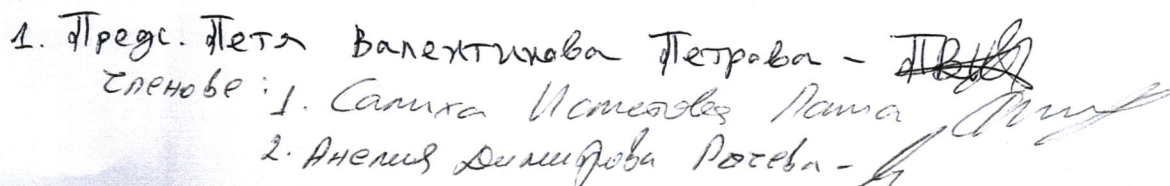 1. Предс. Петя Валентинова Петрова -
Членове: 1. Салиха Исметова
2. Анелия Димитрова -